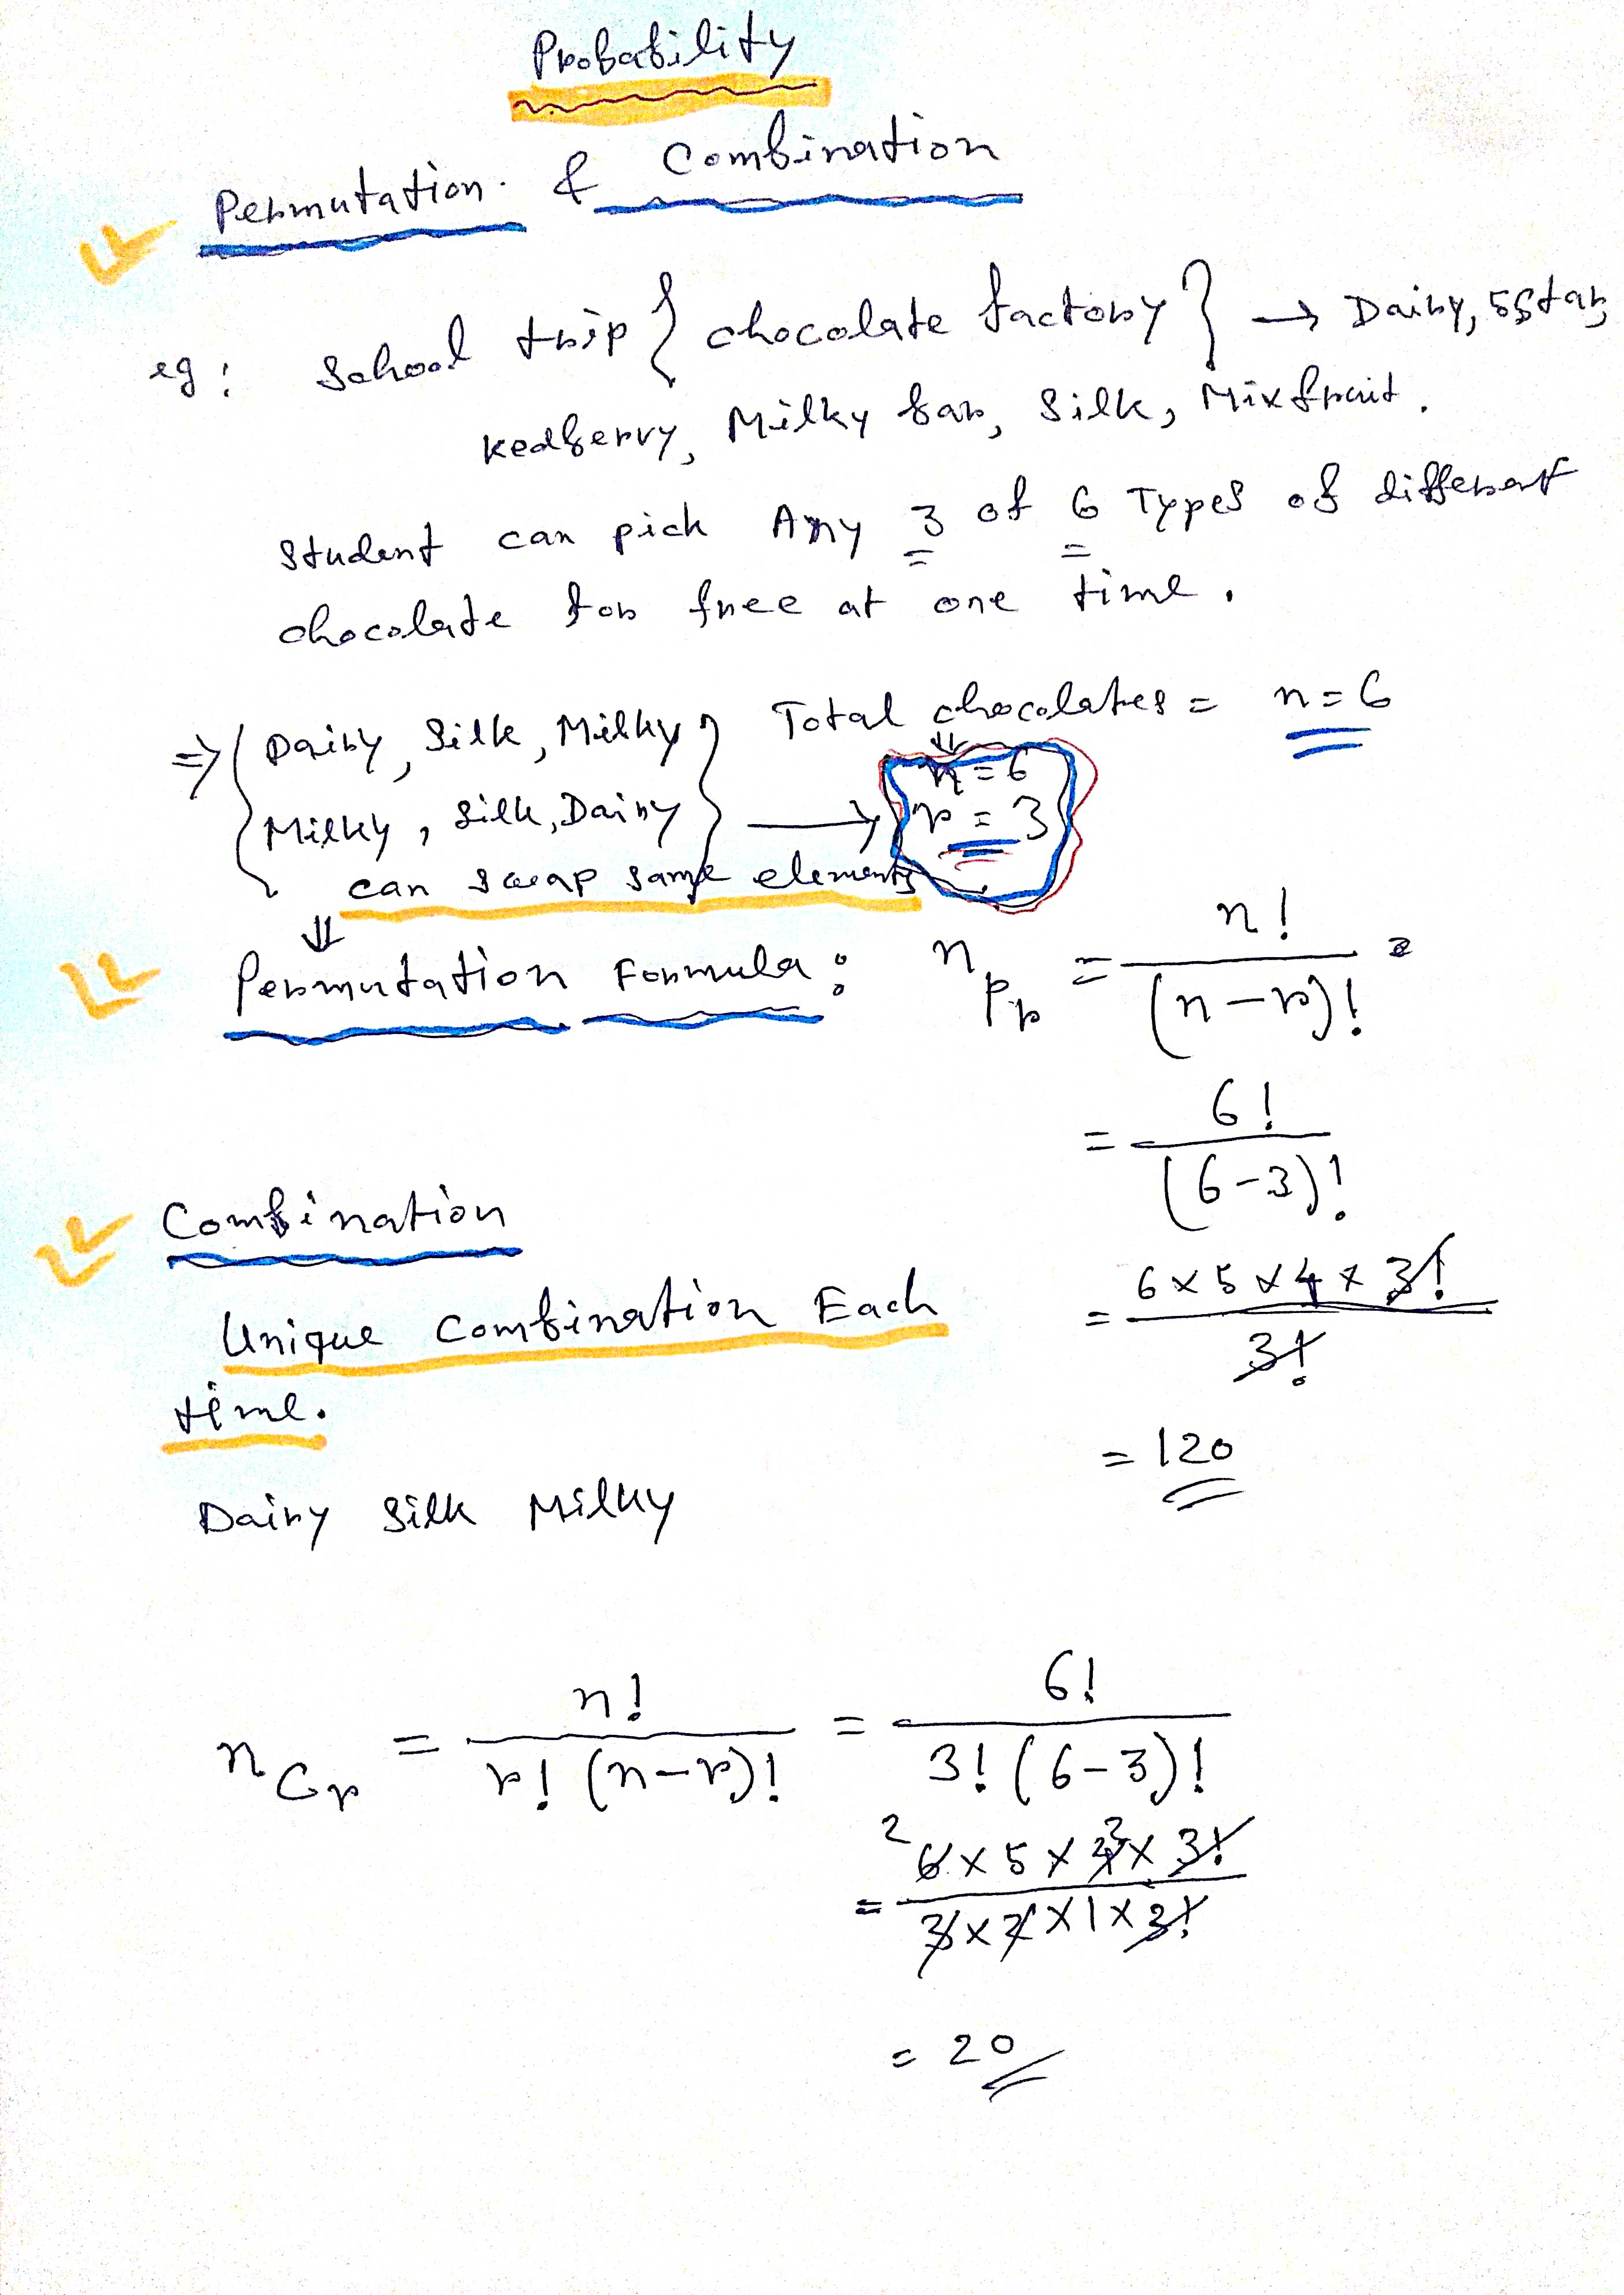 Probability
Permutation & Combination
eg: School trip { chocolate factory } → Dairy, 5star,
Kedberry, Milky bar, Silk, Mixfruit.
Student can pick Any 3 of 6 Types of different
chocolate for free at one time.
⇒ { Dairy, Silk, Milky } Total chocolates = n = 6
⇓ n = 6
Milky, Silk, Dairy → r = 3
can swap same elements
⇓
Permutation Formula : nPr = n! / (n-r)! =
= 6! / (6-3)!
= 6 x 5 x 4 x 3! / 3!
= 120
Combination
Unique Combination Each
time.
Dairy Silk Milky
nCr = n! / r! (n-r)! = 6! / 3! (6-3)!
= 6 x 5 x 4 x 3! / 3 x 2 x 1 x 3!
= 20